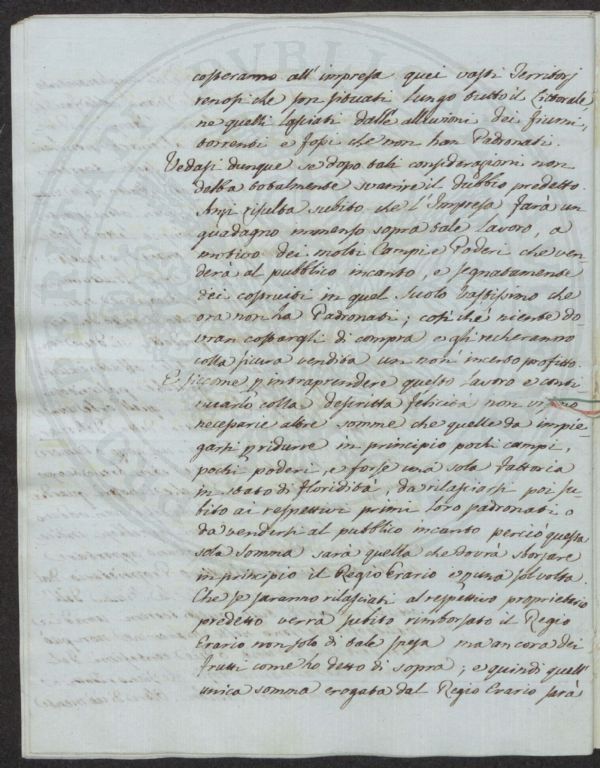 costeranno all'impresa quei vasti Territorj
renosi che son situati lungo tutto il Littorale
ne quelli lasciati dalle alluvioni dei fiumi,
torrenti e fossi che non han Padronati.
Vedasi dunque se dopo tali considerazioni non
debba totalmente svanire il dubbio predetto.
Anzi risulta subito che l'Impresa farà un
guadagno immenso sopra tale lavoro, a
motivo dei molti Campi e Poderi che ven
derà al pubblico incanto, e segnatamente
dei costruiti in quel suolo vastissimo che
ora non ha Padronati; così che niente do
vran costargli di compra e gli recheranno
colla sicura vendita un non incerto profitto.
E siccome p intraprendere questo lavoro e conti
nuarlo colla descritta felicità non
necessarie altre somme che quelle da impie
garsi p ridurre in principio pochi campi,
pochi poderi, e forse una sola fattoria
in stato di floridità, da rilasciarsi poi su
bito ai respettivi primi loro padronati o
da vendersi al pubblico incanto perciò questa
sola somma sarà quella che dovrà sborsare
in principio il Regio Erario e p una sol volta.
Che se saranno rilasciati al respettivo proprietario
predetto verrà subito rimborsato il Regio
Erario non solo di tale spesa ma ancora dei
frutti come ho detto di sopra; e quindi quell'
unica somma erogata dal Regio Erario sarà